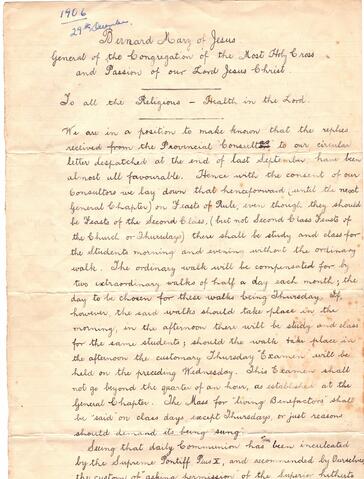 1906
29th December
Bernard Mary of Jesus
General of the Congregation of the Most Holy Cross
and Passion of our Lord Jesus Christ.
To all the Religious - Health in the Lord.
We are in a position to make known that the replies
received from the Provincial Consults to our circular
letter despatched at the end of last September, have been
almost all favourable. Hence with the consent of our
Consultors we lay down that henceforward (until the next
General Chapter) on Feasts of Rule, even though they should
be Feasts of the Second Class, (but not Second Class Feasts of
the Church or Thursdays) there shall be study and class for
the Students morning and evening without the ordinary
walk. The ordinary walk will be compensated for by
two extraordinary walks of half a day each month; the
day to be chosen for these walks being Thursday. If,
however, the said walks should take place in the
morning, in the afternoon there will be study and class
for the same students; should the walk take place in
the afternoon the customary Thursday "Examen" will be
held on the preceding Wednesday. This Examen shall
not go beyond the quarter of an hour, as established at the
General Chapter. The Mass for "living Benefactors" shall
be "said" on class days except Thursdays, or just reasons
should demand its being "sung".
Seeing that daily Communion has been inculcated
by the Supreme Pontiff Pius X, and recommended by Ourselves
the custom of asking permission of the Superior hitherto